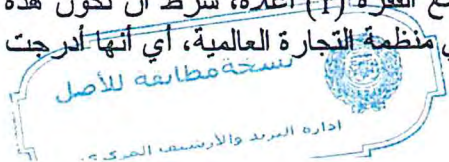 ع الفقرة (1) أعلاه، شرط أن تكون هذه
ي منظمة التجارة العالمية، أي أنها أدرجت
نسخة مطابقة للأصل
ادارة البريد والأرشيف المركزي